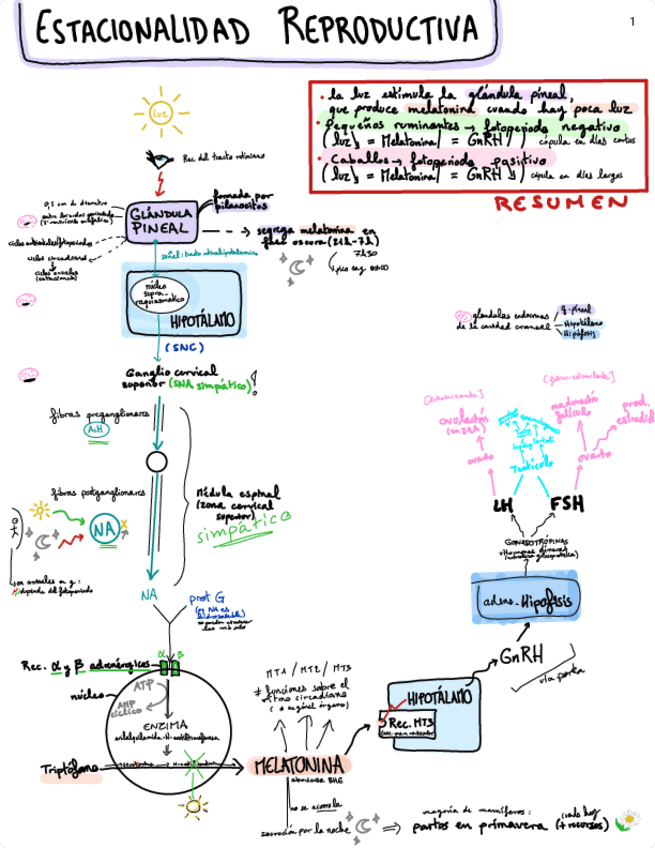 ESTACIONALIDAD REPRODUCTIVA
1
LUZ
Rec. del tracto retiniano
• la luz estimula la glándula pineal,
que produce melatonina cuando hay poca luz
• Pequeños ruminantes → fotoperiodo negativo
(luz↓ = Melatonina↑ = GnRH↑) cópula en días cortos
• Caballos → fotoperiodo positivo
(luz↓ = Melatonina↑ = GnRH↓) cópula en días largos
RESUMEN
0,5 cm de diámetro
formada por
pilanocitos
GLÁNDULA
PINEAL
segrega melatonina en
fase oscura (21h-7h)
7h30
ciclos circadianos
ciclos anuales
señal: tracto retinohipotalámico
núcleo
supra-
HIPOTÁLAMO
(SNC)
glándulas endocrinas
de la cavidad craneal
g. pineal
Hipotálamo
Hipófisis
Ganglio cervical
superior (SNA simpático)!
fibras preganglionares
AcH
fibras postganglionares
NA
Médula espinal
(zona cervical
superior)
simpático
NA
prot G
ovulación
maduración
folículo
prod.
estradiol
ovario
ovario
Testículo
LH
FSH
GONADOTROPINAS
adeno-Hipófisis
GnRH
vía porta
Rec. α y β adrenérgicos
α β
núcleo
ATP
AMP
cíclico
ENZIMA
Triptófano
MT1 / MT2 / MT3
≠ funciones sobre el
ritmo circadiano
(≠ según órgano)
HIPOTÁLAMO
Rec. MT3
MELATONINA
atraviesa BHE
no se acumula
secreción por la noche
⇒
mayoría de mamíferos:
partos en primavera
(cuando hay
+ recursos)